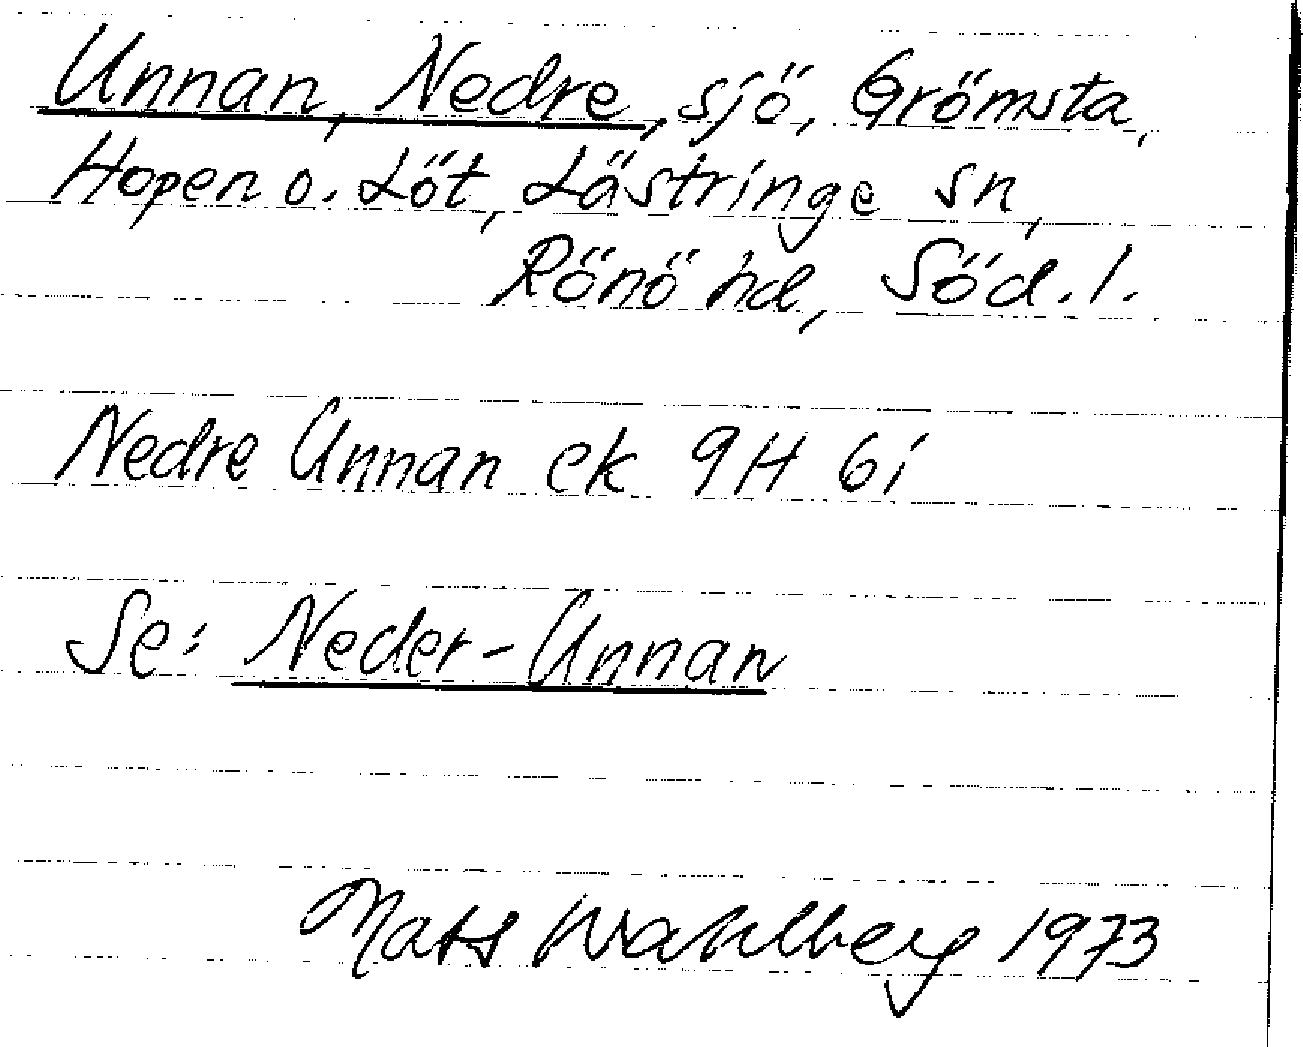 Unnan, Nedre, sjö, Grömsta,
Hopen o. Löt, Lästringe sn,
Rönö hd, Söd. l.
Nedre Unnan ek 9H 6i
Se: Neder-Unnan
Mats Wahlberg 1973